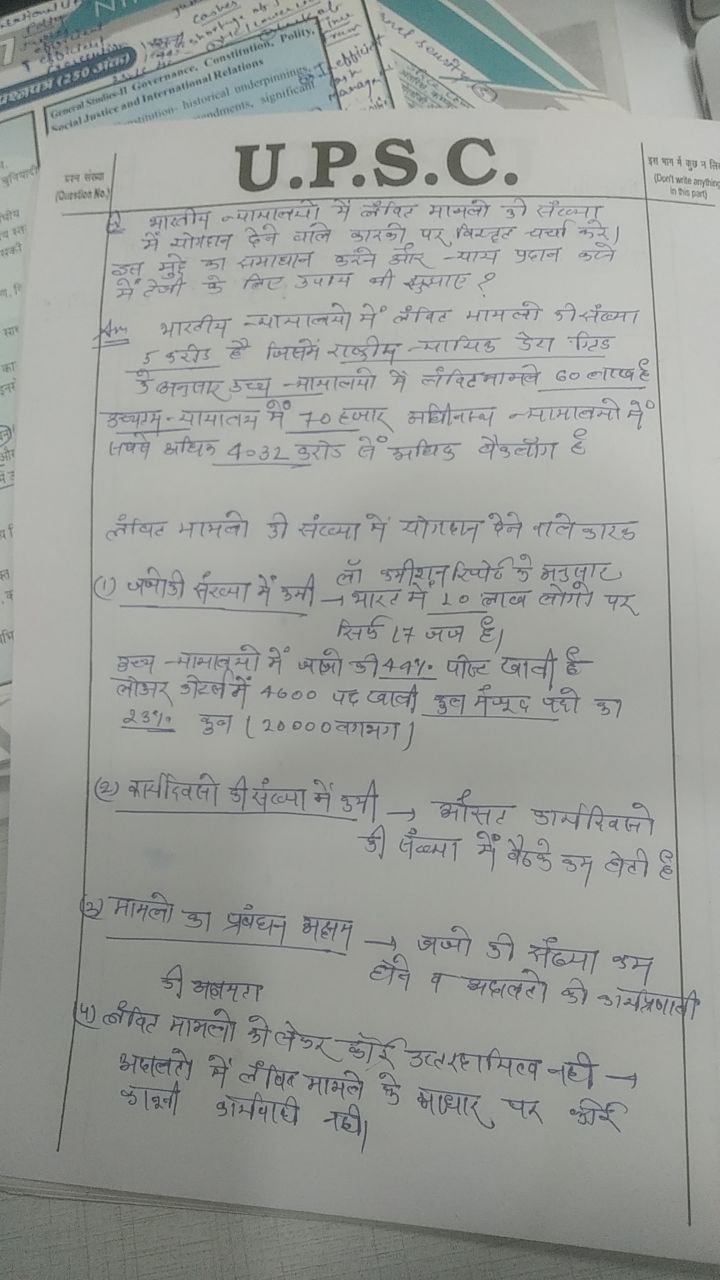 Cashes
shortings
Inefficient
cash
manage
प्रश्नपत्र (250 अंक)
General Studies-II Governance, Constitution, Polity,
Social Justice and International Relations
historical underpinnings,
significant
U.P.S.C.
प्रश्न संख्या
(Question No.)
(Don't write anything
in this part)
Q भारतीय न्यायालयो में लंबित मामलो की संख्या
में योगदान देने वाले कारको पर विस्तृत चर्चा करे।
इस मुद्दे का समाधान करने और न्याय प्रदान करने
में तेजी के लिए उपाय भी सुझाए ?
Ans भारतीय न्यायालयो में लंबित मामलो की संख्या
5 करोड है जिसमें राष्ट्रीय न्यायिक डेटा ग्रिड
के अनुसार उच्च न्यायालयो में लंबित मामले 60 लाख है
उच्चतम न्यायालय में 70 हजार अधीनस्थ न्यायालयो में
सबसे अधिक 4.32 करोड से अधिक बैकलॉग है
लंबित मामलो की संख्या में योगदान देने वाले कारक
(1) जजो की संख्या में कमी → लॉ कमीशन रिपोर्ट के अनुसार
भारत में 10 लाख लोगो पर
सिर्फ 17 जज है।
उच्च न्यायालयो में जजो की 44% पोस्ट खाली है
लोअर कोर्टस में 4600 पद खाली कुल मंजूद पदो का
23% कुल (20000 लगभग)
(2) कार्यदिवसो की संख्या में कमी → औसत कार्यदिवसो
की संख्या में बैठके कम होती है
(3) मामलो का प्रबंधन अक्षम → जजो की संख्या कम
होने व अदालतो की कार्यप्रणाली
की अक्षमता
(4) लंबित मामलो को लेकर कोई उत्तरदायित्व नही →
अदालतो में लंबित मामले के आधार पर कोई
कानूनी कार्यवाही नही।